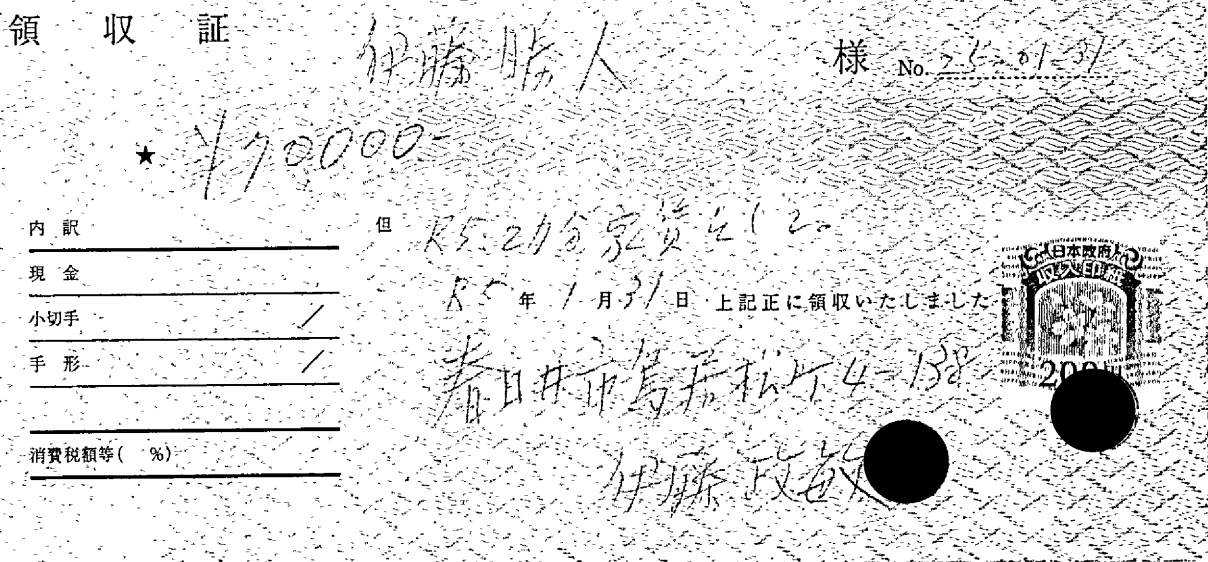 領収証 伊藤勝人 様 No. 25-01-31
★ ¥70000-
内訳
現金
小切手 /
手形 /
消費税額等( %)
但 R5.2月分家賃として
R5年1月31日 上記正に領収いたしました
春日井市鳥居松町4-138
伊藤政敏
日本政府
収入印紙
200円